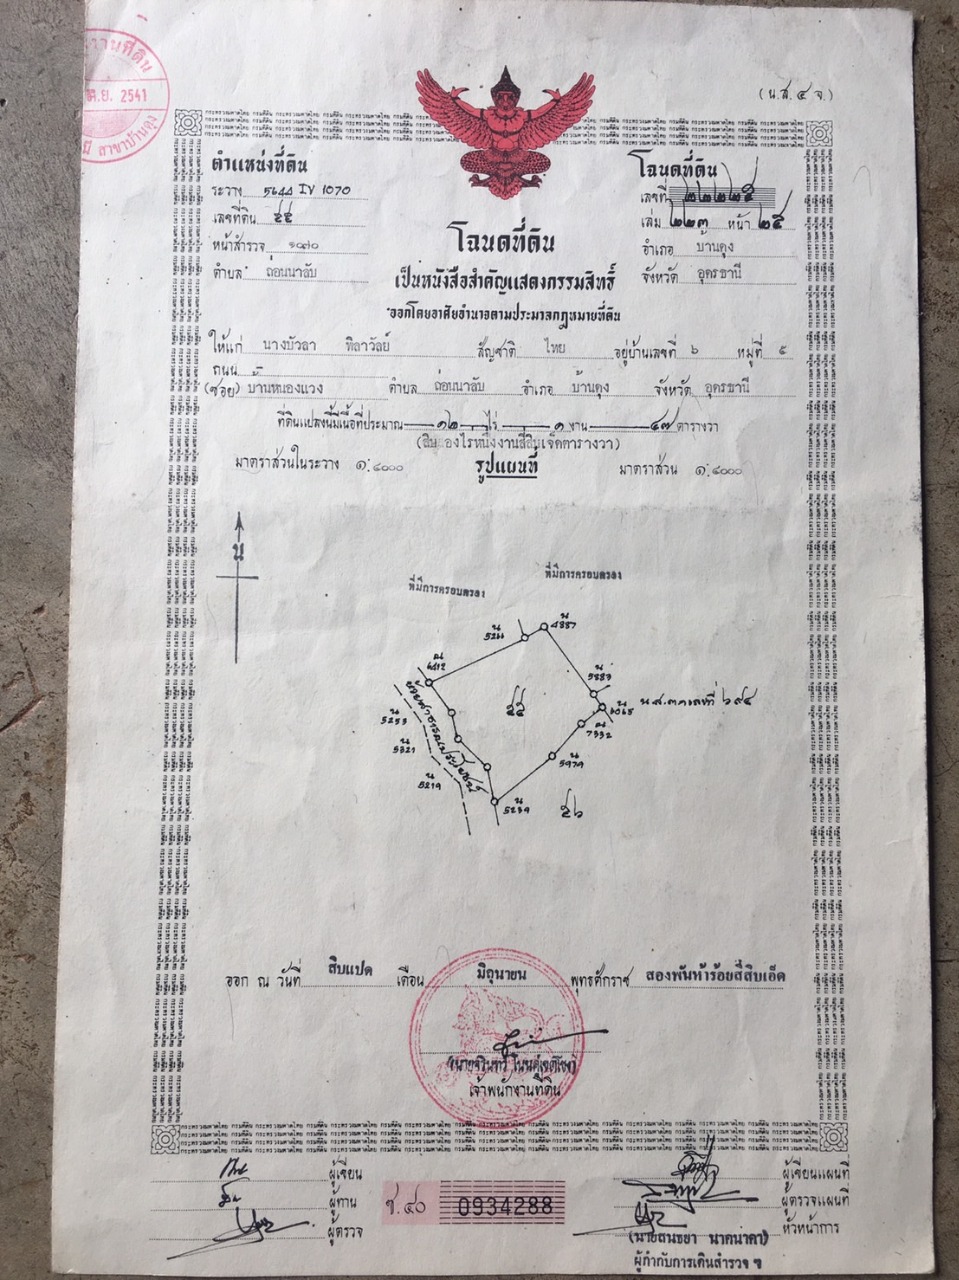 (น.ส. ๔ จ.)
ตำแหน่งที่ดิน
ระวาง 5644 IV 1070
เลขที่ดิน ๕๕
หน้าสำรวจ
ตำบล ถ่อนนาลับ
โฉนดที่ดิน
เลขที่ ๒๒๒๒๕
เล่ม ๒๒๓ หน้า ๒๕
อำเภอ บ้านดุง
จังหวัด อุดรธานี
โฉนดที่ดิน
เป็นหนังสือสำคัญแสดงกรรมสิทธิ์
ออกโดยอาศัยอำนาจตามประมวลกฎหมายที่ดิน
ให้แก่ นางบัวลา ทิลาวัลย์ สัญชาติ ไทย อยู่บ้านเลขที่ ๖ หมู่ที่ ๕
ถนน
(ซอย) บ้านหนองแวง ตำบล ถ่อนนาลับ อำเภอ บ้านดุง จังหวัด อุดรธานี
ที่ดินแปลงนี้มีเนื้อที่ประมาณ ๑๒ ไร่ ๑ งาน ๔๗ ตารางวา
(สิบสองไร่หนึ่งงานสี่สิบเจ็ดตารางวา)
มาตราส่วนในระวาง ๑:๔๐๐๐ รูปแผนที่ มาตราส่วน ๑:๔๐๐๐
น
ที่มีการครอบครอง
ที่มีการครอบครอง
น 5266
น 4887
น 5883
๕๕
น.ส.๓ก เลขที่ ๖๙๔
น 5253
น 5321
น 5219
น 5979
น 5239
๕๖
ออก ณ วันที่ สิบแปด เดือน มิถุนายน พุทธศักราช สองพันห้าร้อยสี่สิบเอ็ด
เจ้าพนักงานที่ดิน
ผู้เขียน
ผู้ทาน
ผู้ตรวจ
ช. ๔๐ 0934288
ผู้เขียนแผนที่
ผู้ตรวจแผนที่
หัวหน้าการ
(นายสนธยา นาคนาคา)
ผู้กำกับการเดินสำรวจ ฯ
2541
สาขาบ้านดุง